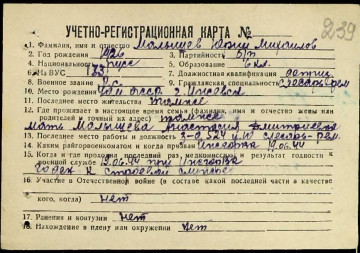 УЧЕТНО-РЕГИСТРАЦИОННАЯ КАРТА № 239
1. Фамилия, имя и отчество Мальцев Юрий Михайлов
2. Год рождения 1926 3. Партийность б/п
4. Национальность русс 5. Образование 6 кл.
6. № ВУС 133 7. Должностная квалификация
8. Военное звание 9. Гражданская специальность слесарь-рем
10. Место рождения
11. Последнее место жительства
12. Где проживает в настоящее время семья (фамилия, имя и отчество жены или
родителей и точный их адрес)
мать Мальцева Анастасия Дмитриевна
13. Последнее место работы и должность слесарь-рем.
14. Каким райгорвоенкоматом и когда призван 19.06.44
15. Когда и где проходил последний раз медкомиссию и результат годности к
военной службе 19.06.44 при
годен к строевой службе
16. Участие в Отечественной войне (в составе какой последней части в качестве
кого, когда) нет
17. Ранения и контузии нет
18. Нахождение в плену или окружении нет